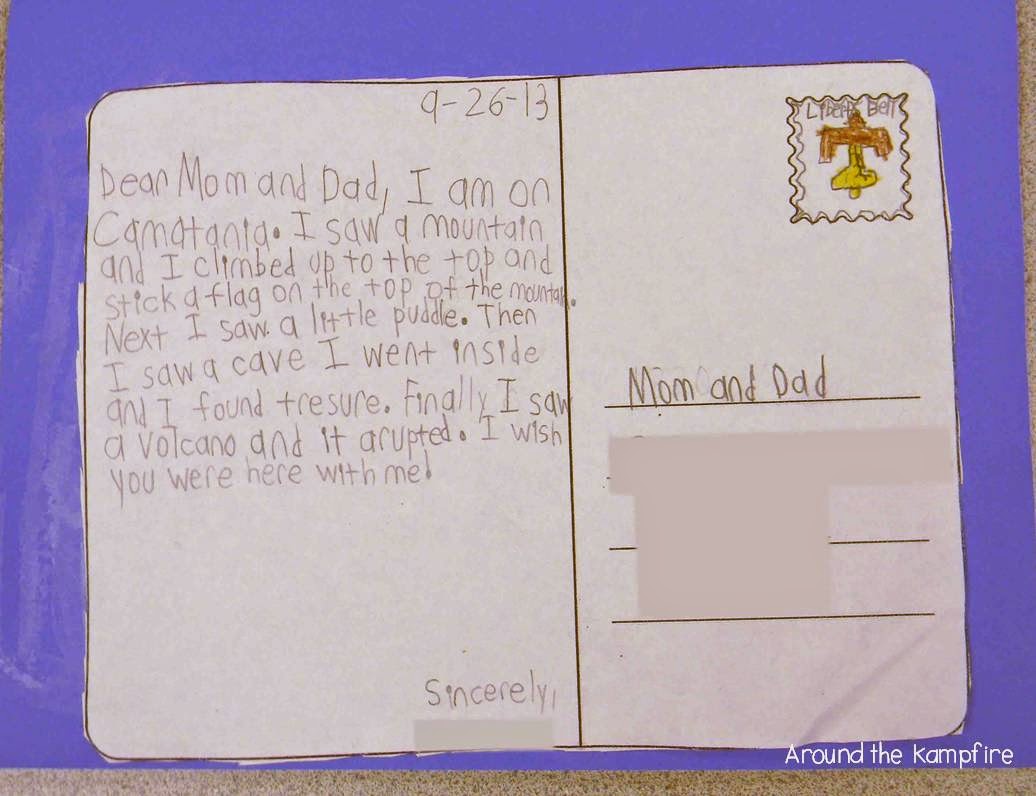 9-26-13
Dear Mom and Dad, I am on
Camatania. I saw a mountain
and I climbed up to the top and
stick a flag on the top of the mountain.
Next I saw a little puddle. Then
I saw a cave I went inside
and I found tresure. Finally I saw
a volcano and it arupted. I wish
you were here with me!
Sincerely,
Liberty Bell
Mom and Dad
Around the Kampfire